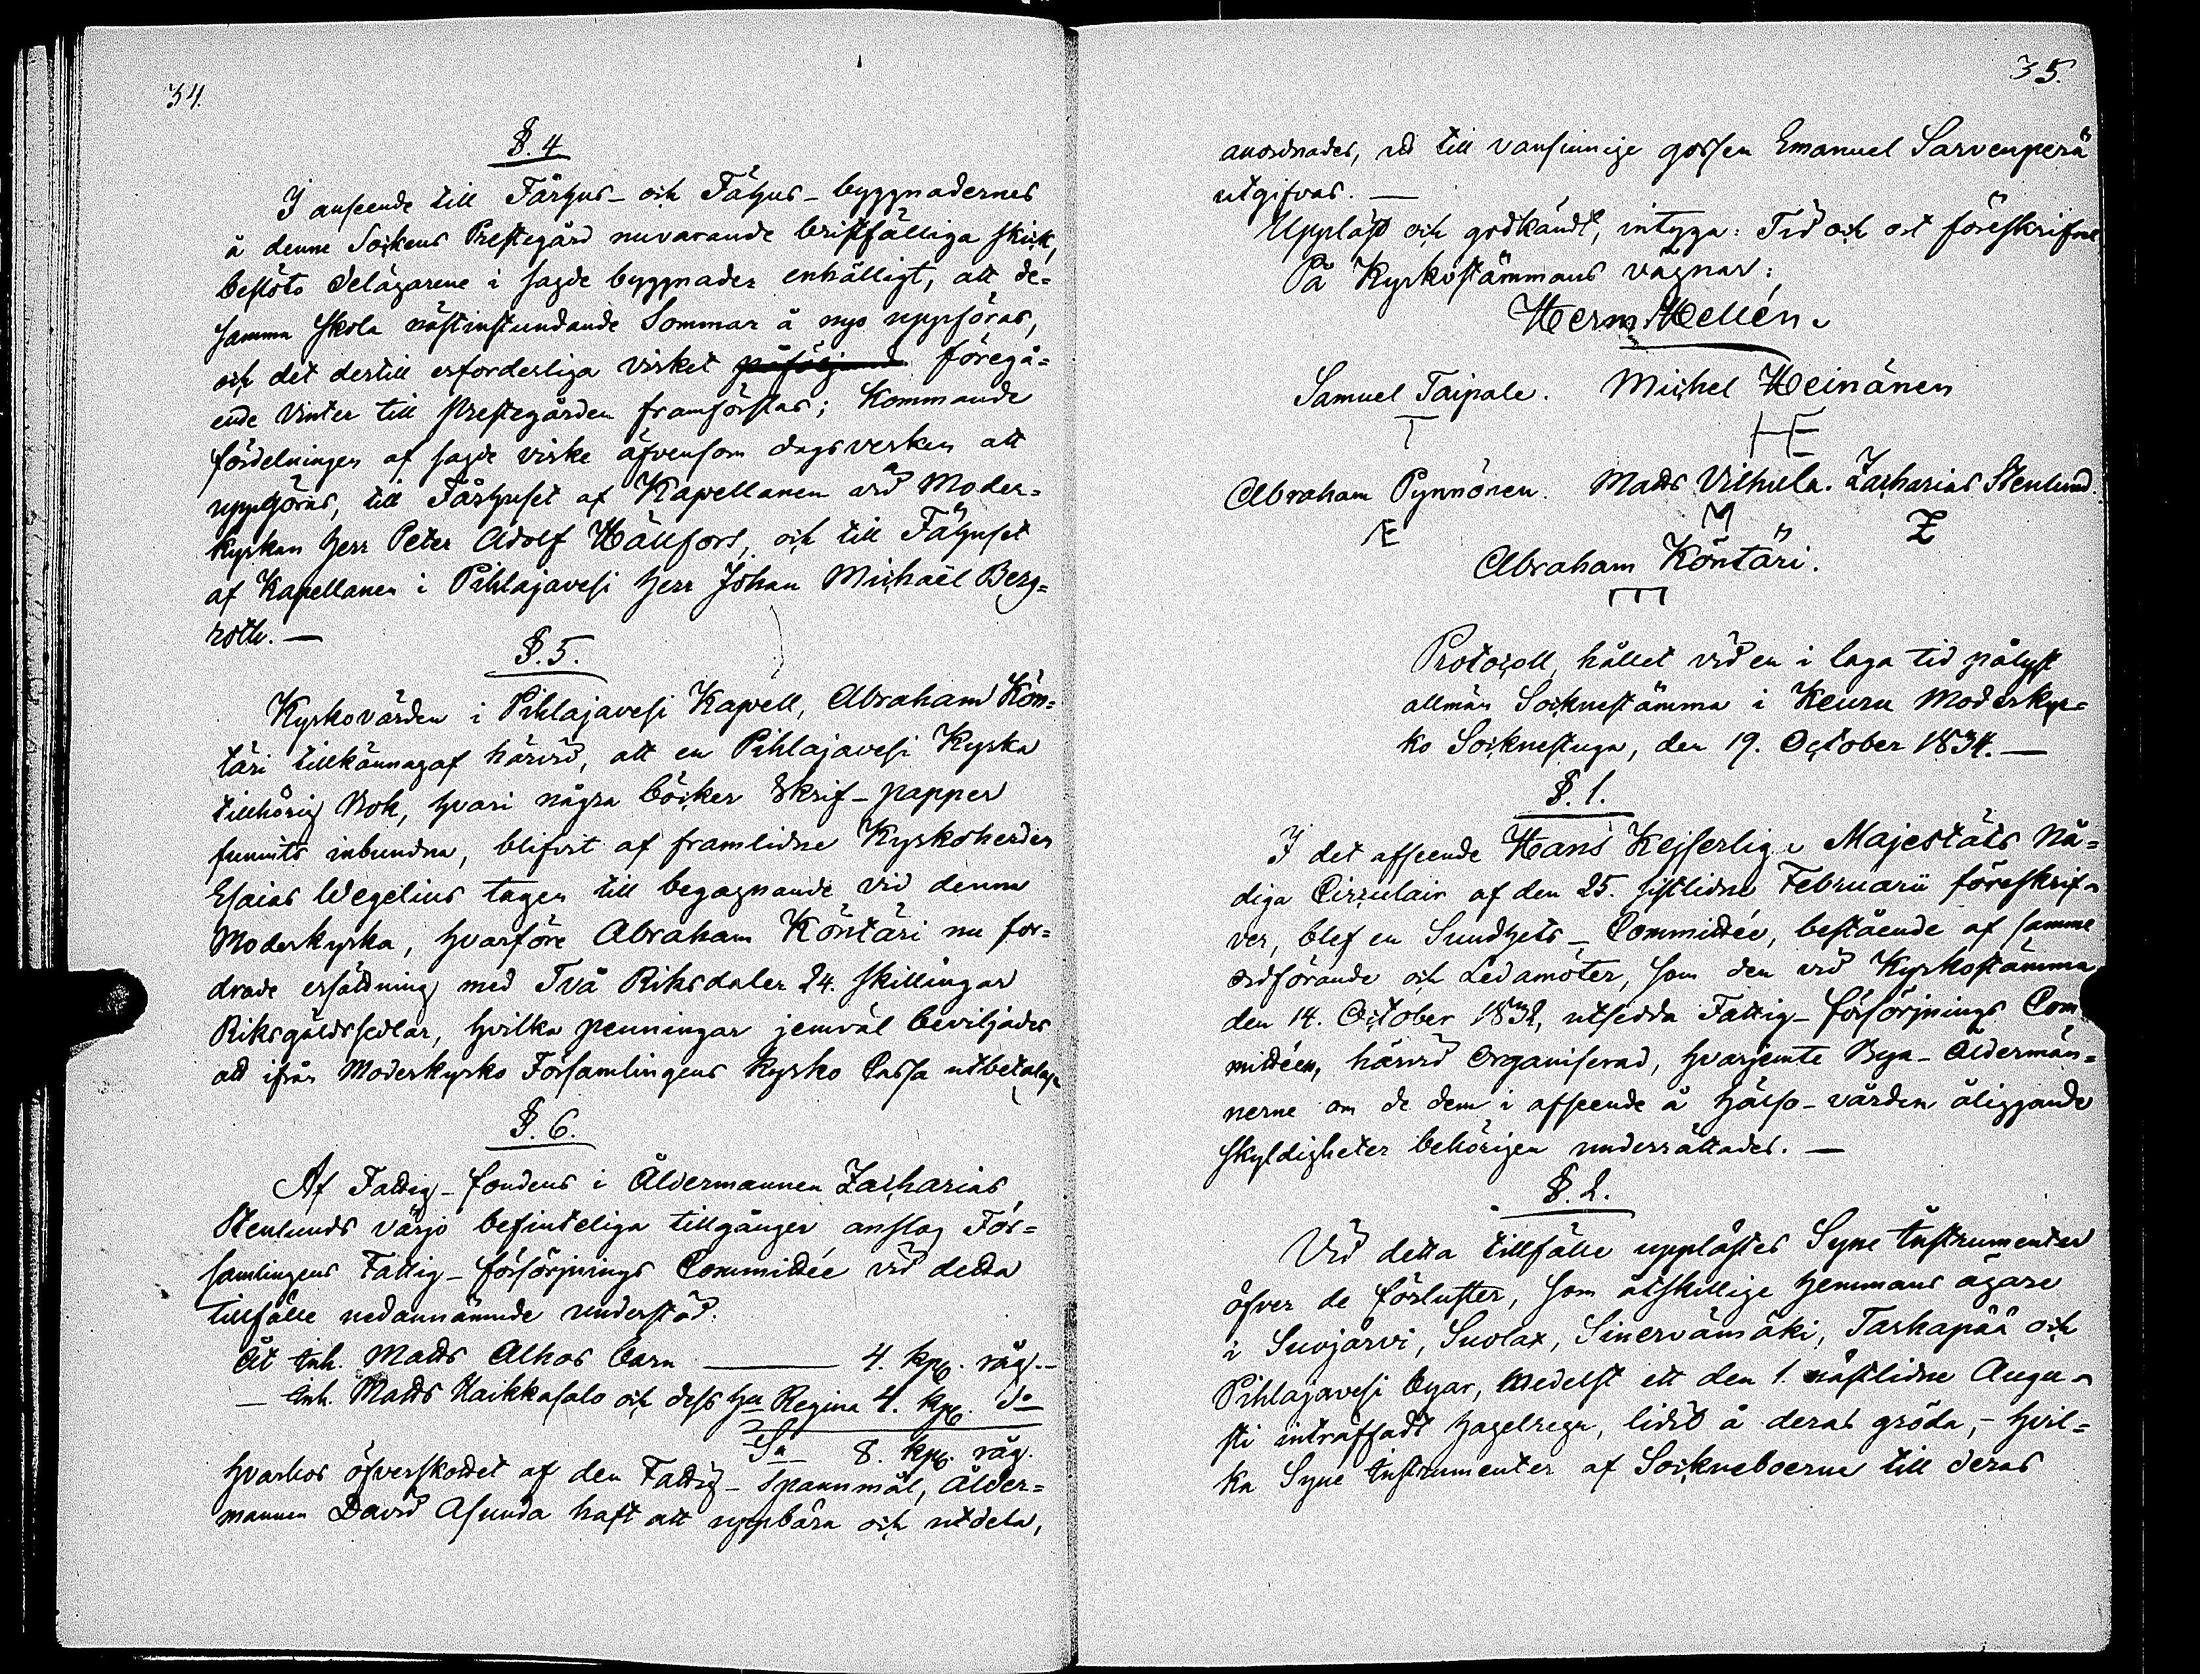 34.
§. 4
I anseende till Fårhus- och Fähus-byggnadernes
å denne Sockens Prestegård nuvarande bristfälliga skick,
beslöto Delägarene i sagde byggnader enhälligt, att de-
samma skola nästinstundande Sommar å nyo uppföras,
och det dertill erforderliga virket påföljande föregå-
ende Vinter till Prestegården framförslas; Kommande
fördelningen af sagde virke äfvensom dagsverken att
uppgöras, till Fårhuset af Kapellanen vid Moder-
kyrkan Herr Peter Adolf Hällfors, och till Fähuset
af Kapellanen i Pihlajavesi Herr Johan Michaël Berg-
roth. —
§. 5.
Kyrkovärden i Pihlajavesi Kapell, Abraham Kön-
täri tillkännagaf härvid, att en Pihlajavesi Kyrka
tillhörig Bok, hvari några böcker Skrif-papper
funnits inbundna, blifvit af framlidne Kyrkoherden
Esaias Wegelius tagen till begagnande vid denna
Moderkyrka, hvarföre Abraham Köntäri nu for-
drade ersättning med Två Riksdaler 24. skillingar
Riksgäldssedlar, hvilka penningar jemväl beviljades
att ifrån Moderkyrko Församlingens Kyrko Cassa utbetalas
§. 6.
Af Fattig-fondens i Åldermannen Zacharias
Stenlunds värjo befinteliga tillgånger anslog För-
samlingens Fattig-försörjnings Committée vid detta
tillfälle nedannämnde understöd.
Åt Inh. Matts Alhos barn — 4. kpp. råg. —
— Inh. Matts Haikkasalo och dess hu Regina 4. kpp. do
Sa 8. kpp. råg.
hvarhos öfverskottet af den Fattig-Spannmål, Ålder-
mannen David Asunda haft att uppbära och utdela,
35.
anordnades, att till vansinnige gossen Emanuel Sarvenperä
utgifvas. —
Uppläst och godkändt, intyga: Tid och ort föreskrifne
På Kyrkostämmans vägnar:
Herm. Hellén.
Samuel Taipale. Michel Heinänen
T HE
Abraham Pynnönen. Matts Vilhula. Zacharias Stenlund.
Æ M Z
Abraham Köntäri.
Protocoll, hållet vid en i laga tid pålyst
allmän Socknestämma i Keuru Moderkyr-
ko Socknestuga, den 19. October 1834. —
§. 1.
I det afseende Hans Kejserlige Majestäts Nå-
diga Circulair af den 25. sistlidne Februarii föreskrif-
ver, blef en Sundhets-Committée, bestående af samme
ordförande och Ledamöter, som den vid Kyrkostämma
den 14. October 1832, utsedda Fattig-försörjnings Com-
mittéen, härvid organiserad, hvarjemte Bya-Åldermän-
nerne om de dem i afseende å hälso-vården åliggande
skyldigheter behörigen underrättades. —
§. 2.
Vid detta tillfälle upplästes Syne Instrumenter
öfver de förluster, som åtskillige hemmans ägare
i Suojärvi, Suolax, Sinervämäki, Tarhapää och
Pihlajavesi byar, medelst ett den 1. nästlidne Augu-
sti inträffadt hagelregn, lidit å deras gröda, - hvil-
ka Syne Instrumenter af Sockneboerne till deras